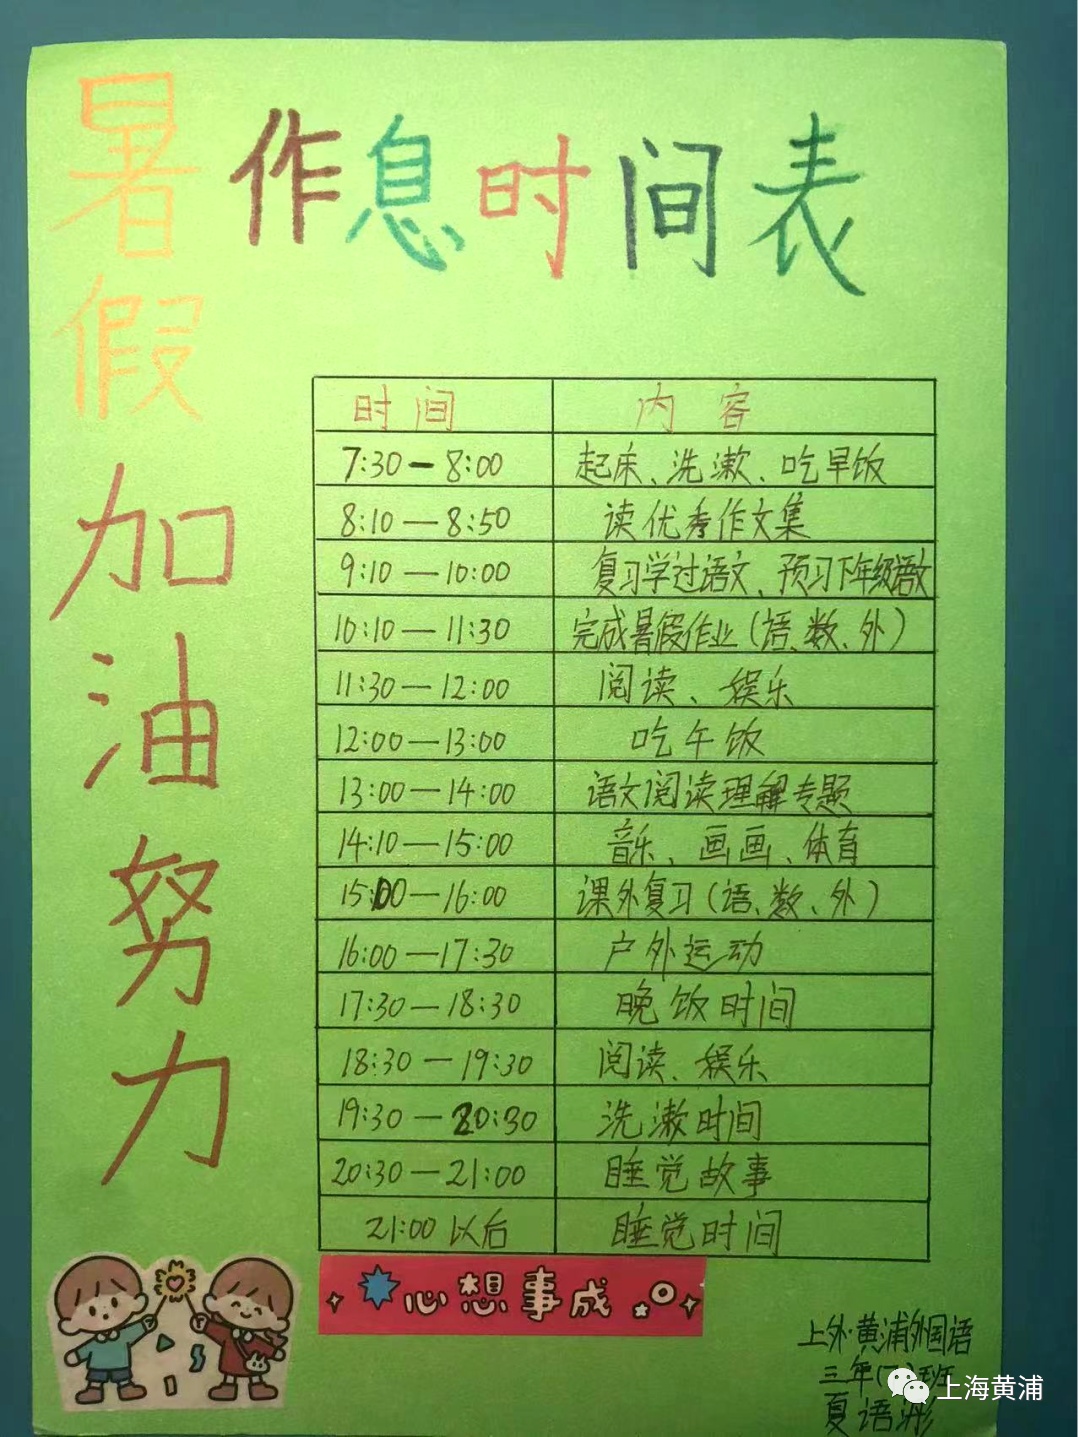 暑假
加油努力
作息时间表
时间 内容
7:30—8:00 起床、洗漱、吃早饭
8:10—8:50 读优秀作文集
9:10—10:00 复习学过语文、预习下年级语文
10:10—11:30 完成暑假作业(语、数、外)
11:30—12:00 阅读、娱乐
12:00—13:00 吃午饭
13:00—14:00 语文阅读理解专题
14:10—15:00 音乐、画画、体育
15:00—16:00 课外复习(语、数、外)
16:00—17:30 户外运动
17:30—18:30 晚饭时间
18:30—19:30 阅读、娱乐
19:30—20:30 洗漱时间
20:30—21:00 睡觉故事
21:00以后 睡觉时间
心想事成
上外·黄浦外国语
三年( )班
夏语
上海黄浦